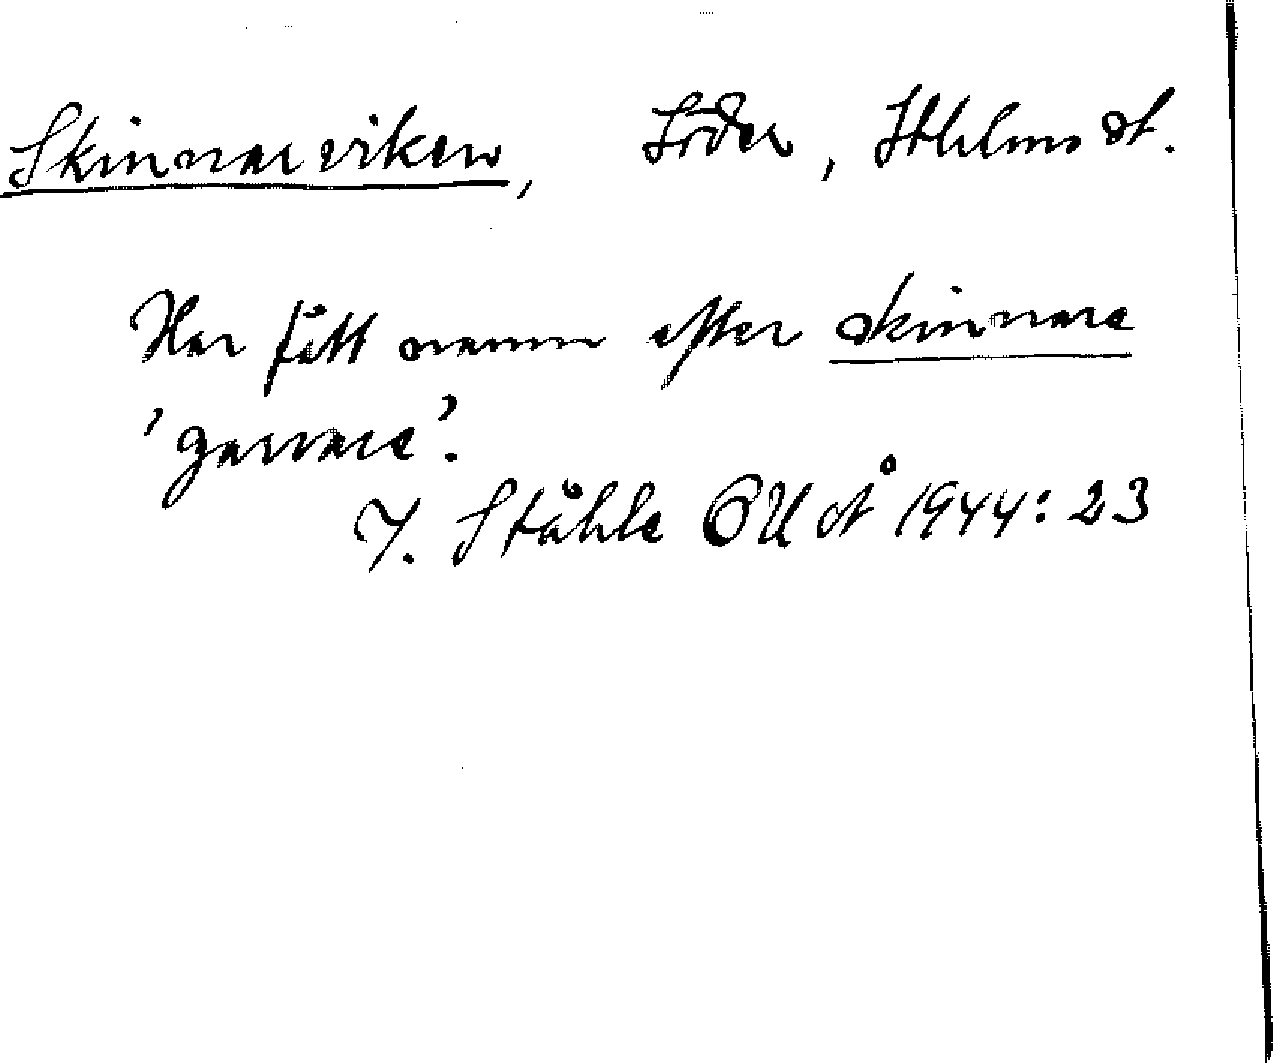 Skinnarviken, Söder, Sthlms st.
Har fått namn efter skinnare
'garvare'.
I. Ståhle SUSÅ 1944: 23